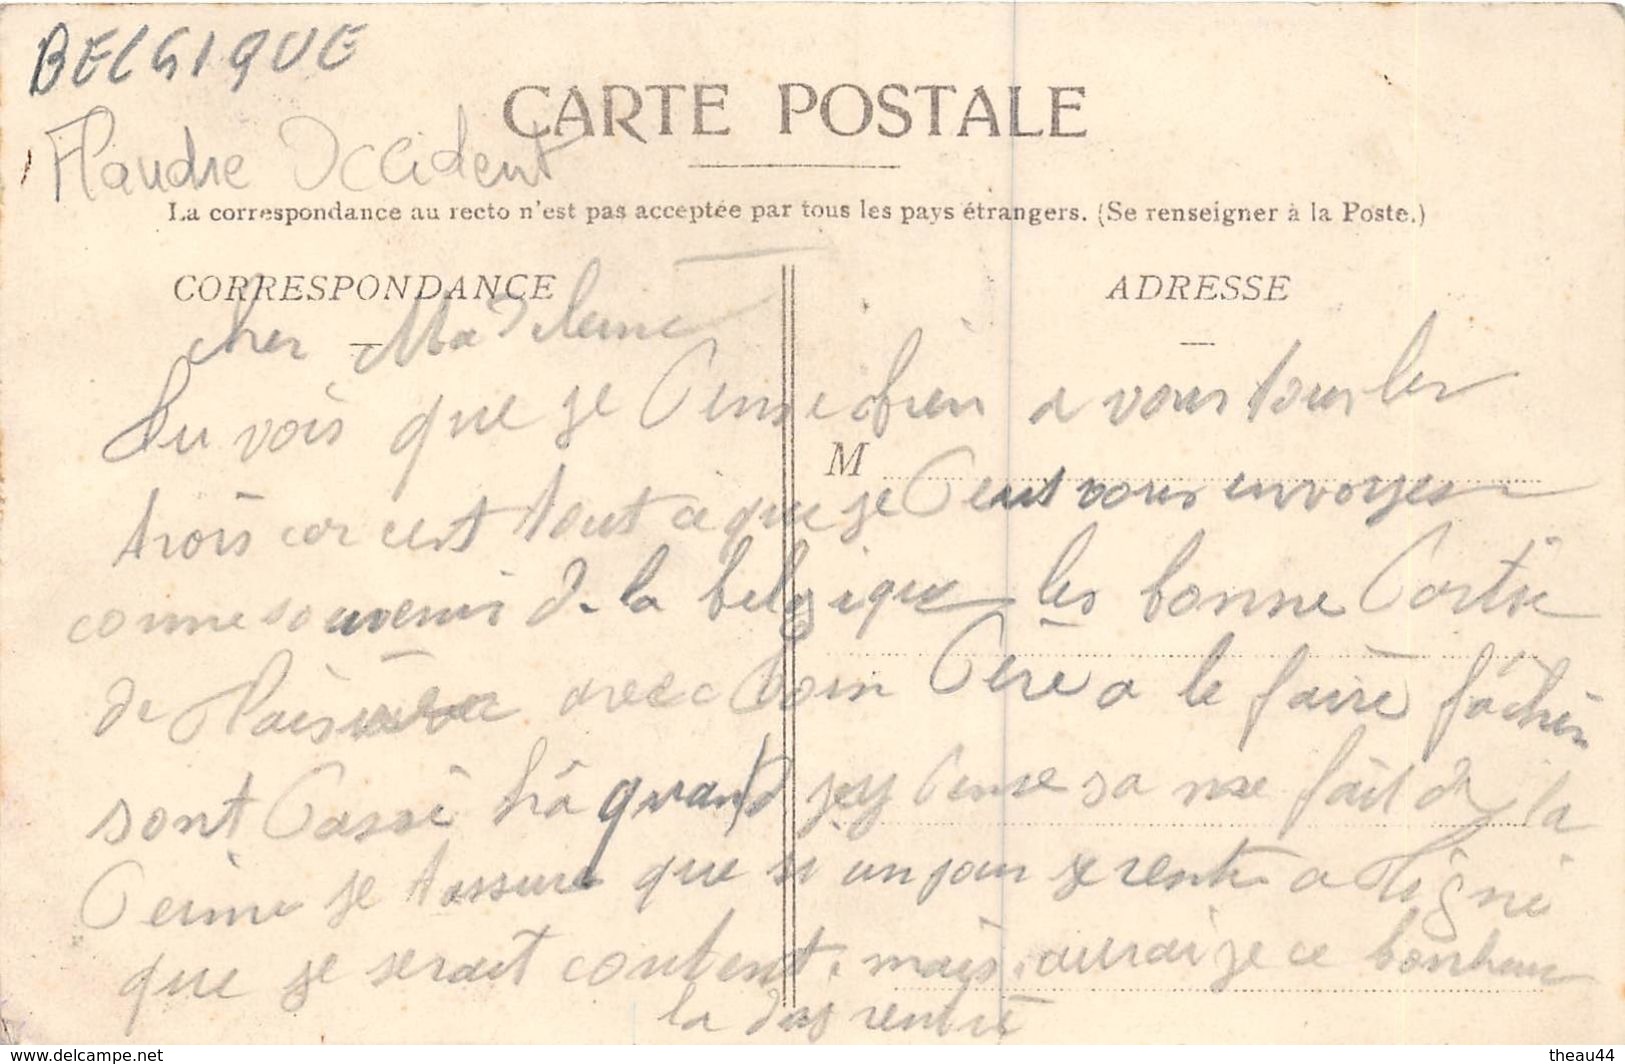 BELGIQUE
CARTE POSTALE
Flandre Occident
La correspondance au recto n'est pas acceptée par tous les pays étrangers. (Se renseigner à la Poste.)
CORRESPONDANCE
ADRESSE
cher Madeleine
Tu vois que je Pense bien a vous tous les
M
trois car cest tout ce que je Peut vous envoyer
comme souvenir de la belgique les bonne Partie
de Plaisir avec Bon Père a le faire fâcher
sont Passé ha quand jey Pense sa me fait de la
Peine je tassure que si un jour je rentre a Ligni
que je serait content, mais aurai je ce bonheur
la das rentré
www.delcampe.net
theau44